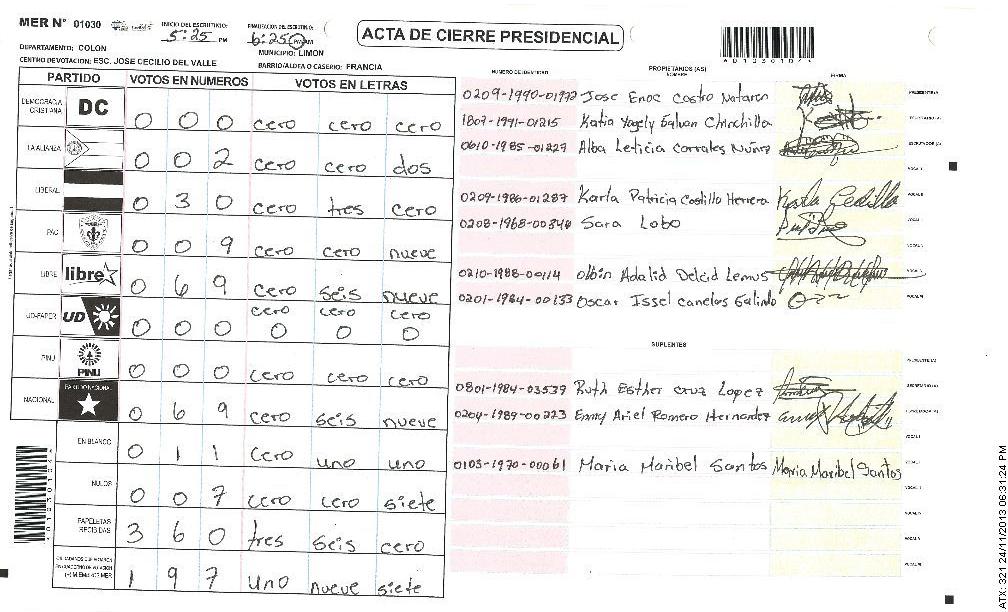 MER N° 01030
INICIO DEL ESCRUTINIO: 5:25 PM
FINALIZACION DEL ESCRUTINIO: 6:25
ACTA DE CIERRE PRESIDENCIAL
DEPARTAMENTO: COLON
MUNICIPIO: LIMON
CENTRO DE VOTACION: ESC. JOSE CECILIO DEL VALLE
BARRIO/ALDEA O CASERIO: FRANCIA
PARTIDO VOTOS EN NUMEROS VOTOS EN LETRAS
DEMOCRACIA CRISTIANA DC 0 0 0 cero cero cero
LA ALIANZA 0 0 2 cero cero dos
LIBERAL 0 3 0 cero tres cero
PAC 0 0 9 cero cero nueve
LIBRE libre 0 6 9 cero seis nueve
UD-FAPER UD 0 0 0 cero cero cero
0 0 0
PINU PINU 0 0 0 cero cero cero
NACIONAL PARTIDO NACIONAL 0 6 9 cero seis nueve
EN BLANCO 0 1 1 cero uno uno
NULOS 0 0 7 cero cero siete
PAPELETAS RECIBIDAS 3 6 0 tres seis cero
1 9 7 uno nueve siete
NUMERO DE IDENTIDAD PROPIETARIOS (AS) NOMBRE FIRMA
0209-1990-01972 Jose Enoc Castro Nataren
1807-1991-01215 Katia Yogely Galvan Chinchilla
0610-1985-01227 Alba Leticia Corrales Nuñez
0209-1986-01287 Karla Patricia Castillo Herrera
0208-1968-00344 Sara Lobo
0210-1988-00114 Olbin Adalid Delcid Lemus
0201-1964-00133 Oscar Issel Canelas Galindo
SUPLENTES
0801-1984-03539 Ruth Esther Cruz Lopez
0204-1989-00223 Enny Ariel Romero Hernandez
0103-1970-00061 Maria Maribel Santos Maria Maribel Santos
ATX: 321 24/11/2013 06:31:24 PM